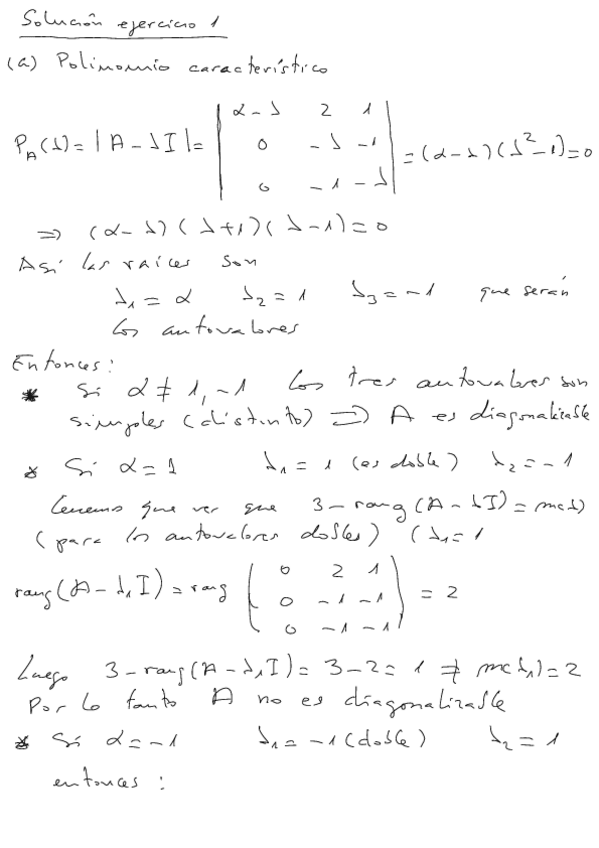 Solución ejercicio 1
(a) Polinomio característico
P_A(λ) = |A - λI| = | α-λ 2 1 |
| 0 -λ -1 | = (α-λ)(λ²-1) = 0
| 0 -1 -λ |
⇒ (α-λ)(λ+1)(λ-1) = 0
Así las raíces son
λ₁ = α λ₂ = 1 λ₃ = -1 que serán
los autovalores
Entonces:
* Si α ≠ 1, -1 los tres autovalores son
simples (distinto) ⇒ A es diagonalizable
* Si α = 1 λ₁ = 1 (es doble) λ₂ = -1
tenemos que ver que 3 - rang(A - λI) = m(λ)
(para los autovalores dobles) (λ₁ = 1
rang(A - λ₁I) = rang ( 0 2 1 )
( 0 -1 -1 ) = 2
( 0 -1 -1 )
Luego 3 - rang(A - λ₁I) = 3 - 2 = 1 ≠ m(λ₁) = 2
Por lo tanto A no es diagonalizable
* Si α = -1 λ₁ = -1 (doble) λ₂ = 1
entonces :